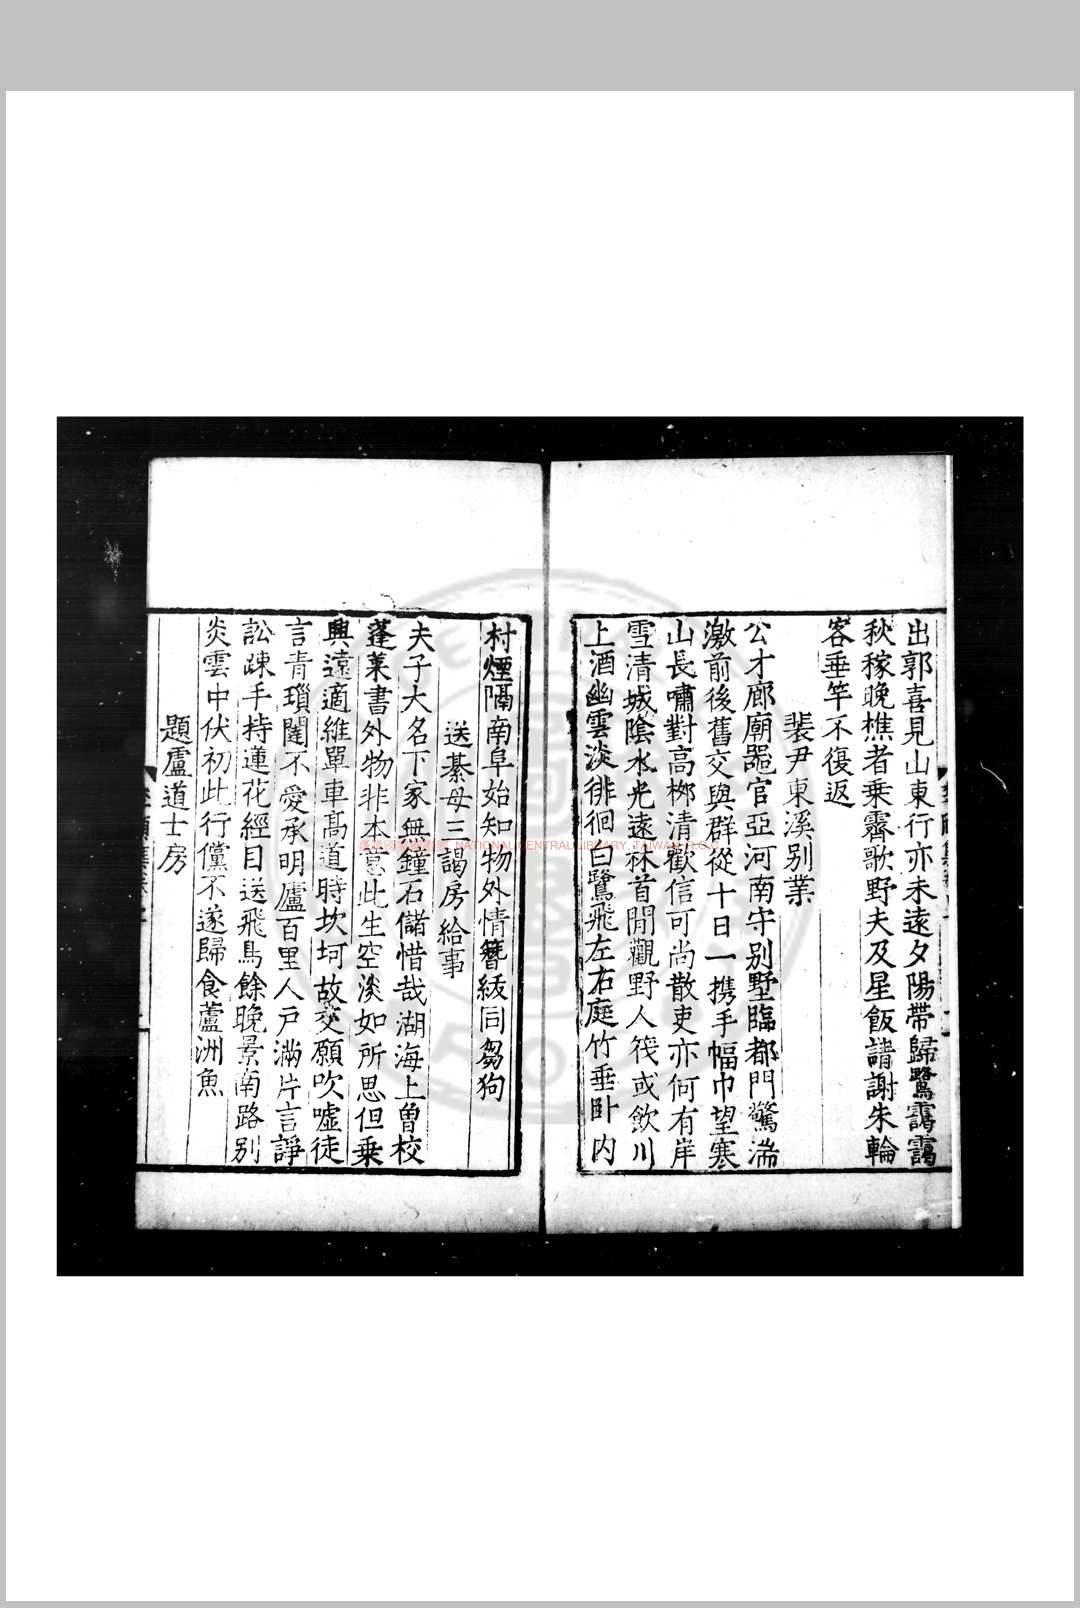 出郭喜見山東行亦未遠夕陽帶歸鷺靄靄
秋稼晚樵者乗霽歌野夫及星飯請謝朱輪
客垂竿不復返
裴尹東溪别業
公才廊廟噐官亞河南守别墅臨都門驚湍
激前後舊交與群從十日一携手幅巾望寒
山長嘯對高栁清歡信可尚散吏亦何有岸
雪清城隂水光遠林首閒觀野人筏或飲川
上酒幽雲淡徘徊白鷺飛左右庭竹垂卧内
村煙隔南阜始知物外情簪紱同芻狗
送綦母三謁房給事
夫子大名下家無鐘石儲惜哉湖海上曽校
蓬莱書外物非本意此生空淡如所思但乗
興遠適維單車髙道時坎坷故交願吹嘘徒
言青瑣闥不愛承明廬百里人戸滿片言諍
訟疎手持蓮花經目送飛鳥餘晚景南路别
炎雲中伏初此行儻不遂歸食蘆洲魚
題盧道士房
NATIONAL CENTRAL LIBRARY, TAIWAN, R.O.C